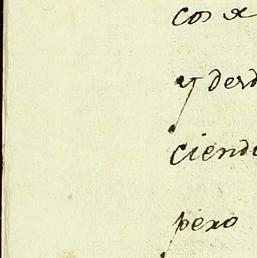 cos
y desd
ciend
pero